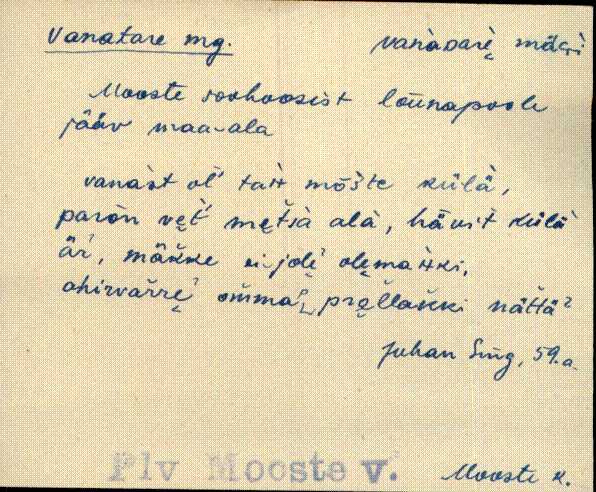 Vanatare mg. vanàᴅarè̬ mäɢi
Mooste soohoosist lõunapoole
jääv maa-ala
vanàst oĺ täü mõšte külä,
paròn ve̬t́ me̬t́sà alà, hävit́ külä
är̀, mäkke ei‿jole̬ ole̬mat́ki,
ahirvarre̬ ommaʔ pre̬llakki nättäʔ
Juhan Sing, 59.a.
Plv Mooste v. Mooste k.